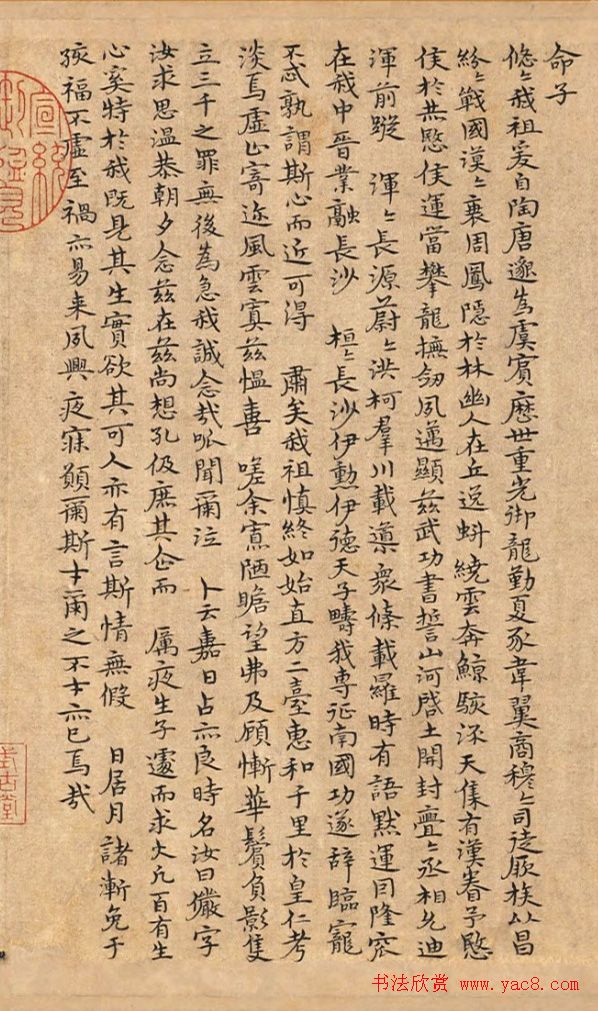 命子
悠〻我祖爰自陶唐邈為虞賓歷世重光御龍勤夏豕韋翼商穆〻司徒厥族以昌
紛〻戰國漠〻衰周鳳隱於林幽人在丘逸虯繞雲奔鯨駭流天集有漢眷予愍
侯於赫愍侯運當攀龍撫劍夙邁顯茲武功書誓山河啓土開封亹〻丞相允迪
渾前蹤 渾〻長源蔚〻洪柯羣川載導衆條載羅時有語默運因隆窊
在我中晉業融長沙 桓〻長沙伊勳伊德天子疇我專征南國功遂辭臨寵
不忒孰謂斯心而近可得 肅矣我祖慎終如始直方二臺惠和千里於皇仁考
淡焉虛止寄迹風雲寘茲慍喜 嗟余寡陋瞻望弗及顧慚華鬢負影隻
立三千之罪無後為急我誠念哉呱聞爾泣 卜云嘉日占亦良時名汝曰儼字
汝求思溫恭朝夕念茲在茲尚想孔伋庶其企而 厲夜生子遽而求火凡百有生
心奚特於我既見其生實欲其可人亦有言斯情無假 日居月諸漸免于
孩福不虛至禍亦易来夙興夜寐願爾斯才爾之不才亦已焉哉
宣統
式古堂
书法欣赏 www.yac8.com